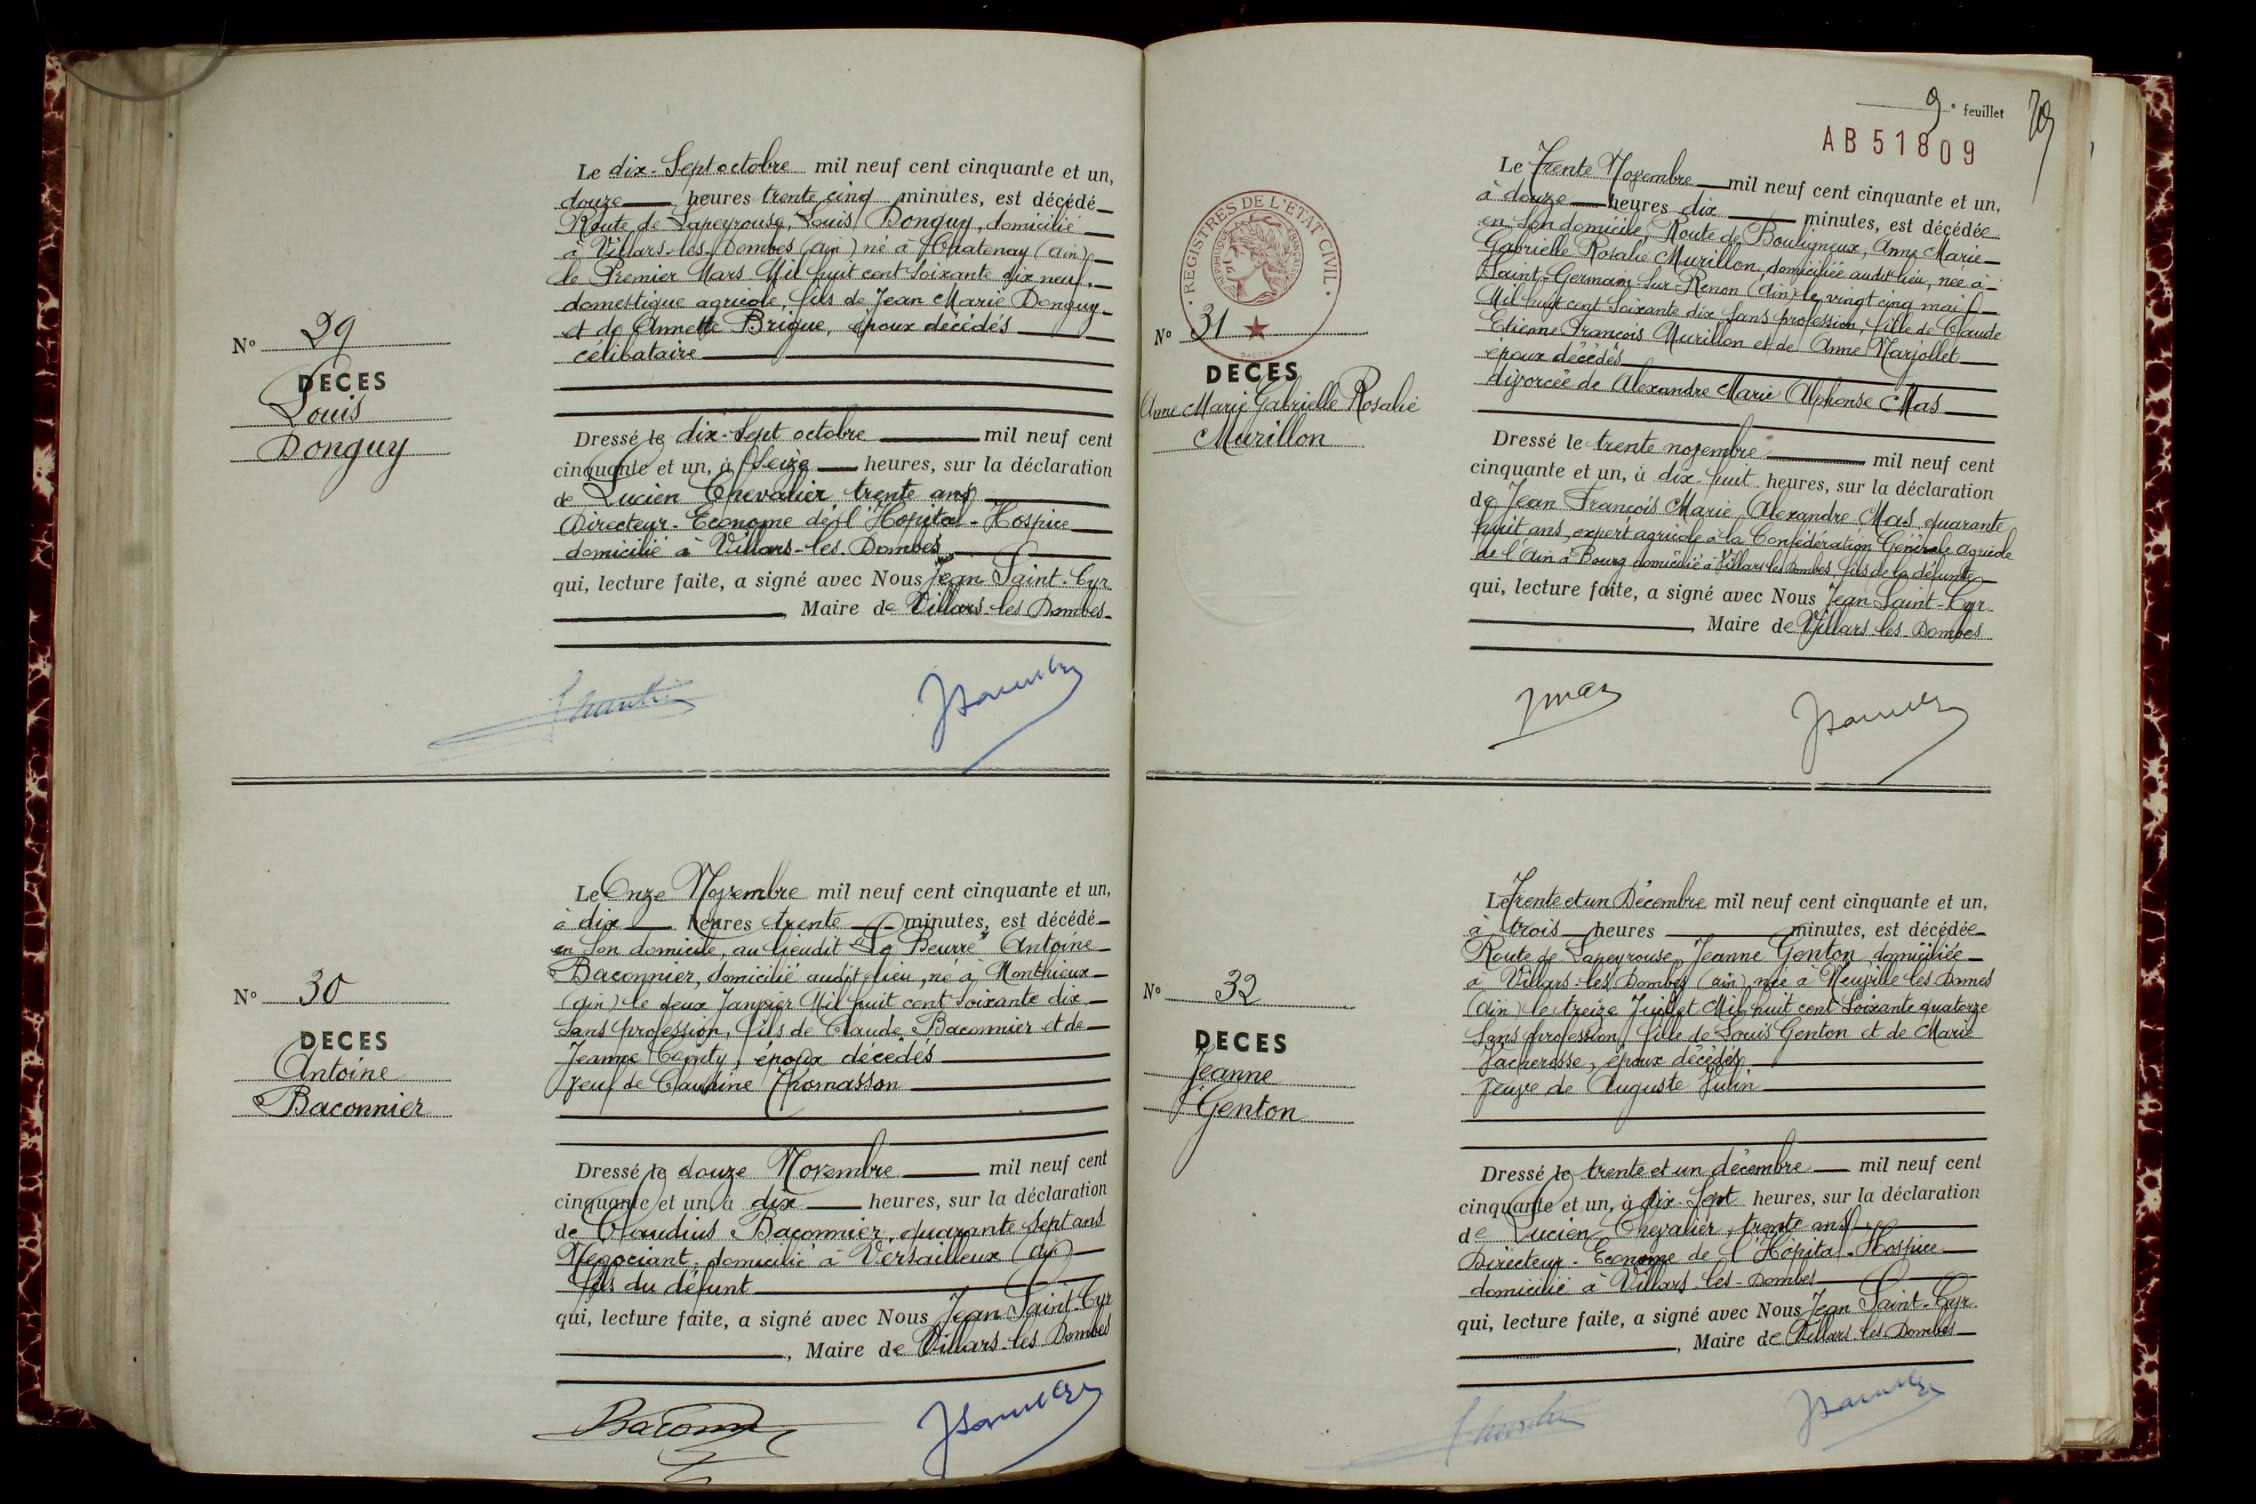 Le dix-Sept octobre mil neuf cent cinquante et un,
douze heures trente cinq minutes, est décédé
Route de Lapeyrouse, Louis Donguy, domicilié
à Villars-les-Dombes (Ain) né à Chatenay (Ain)
le Premier Mars Mil huit cent soixante dix neuf,
domestique agricole, fils de Jean Marie Donguy
et de Annette Brique, époux décédés
célibataire
Nº 29
DÉCÈS
Louis
Donguy
Dressé le dix-Sept octobre mil neuf cent
cinquante et un, à Seize heures, sur la déclaration
de Lucien Chevalier trente ans
Directeur-Econome de l'Hopital-Hospice
domicilié à Villars-les-Dombes
qui, lecture faite, a signé avec Nous Jean Saint-Cyr
, Maire de Villars-les Dombes
Le Onze Novembre mil neuf cent cinquante et un,
à dix heures trente minutes, est décédé
en son domicile, au lieudit "Le Beurre" Antoine
Baconnier, domicilié audit lieu, né à Monthieux
(Ain) le deux Janvier Mil huit cent soixante dix
sans profession, fils de Claude Baconnier et de
Jeanne, époux décédés
veuf de Claudine Thomasson
Nº 30
DECES
Antoine
Baconnier
Dressé le douze Novembre mil neuf cent
cinquante et un, à dix heures, sur la déclaration
de Claudius Baconnier, quarante sept ans
Négociant, domicilié à Versailleux (Ain)
fils du défunt
qui, lecture faite, a signé avec Nous Jean Saint-Cyr
, Maire de Villars-les Dombes
9e feuillet
79
AB51809
REGISTRES DE L'ETAT CIVIL
Le Trente Novembre mil neuf cent cinquante et un,
à douze heures dix minutes, est décédée
en son domicile, Route de Bouligneux, Anne Marie
Gabrielle Rosalie Murillon, domiciliée audit lieu, née à
Saint-Germain-Sur-Renon (Ain) le vingt cinq mai
Mil huit cent soixante dix sans profession, fille de Claude
Etienne François Murillon et de Anne Marjollet
époux décédés
divorcée de Alexandre Marie Alphonse Mas
Nº 31
DECES
Anne Marie Gabrielle Rosalie
Murillon
Dressé le trente novembre mil neuf cent
cinquante et un, à dix-huit heures, sur la déclaration
de Jean François Marie Alexandre Mas, quarante
huit ans, expert agricole à la Confédération Générale agricole
de l'Ain à Bourg domicilié à Villars les Dombes, fils de la défunte
qui, lecture faite, a signé avec Nous Jean Saint-Cyr
, Maire de Villars les-Dombes
JMas
Le Trente et un Décembre mil neuf cent cinquante et un,
à trois heures minutes, est décédée
Route de Lapeyrouse, Jeanne Genton, domiciliée
à Villars-les Dombes (Ain), née à Neuville les Dames
(Ain) le treize Juillet Mil huit cent Soixante quatorze
Sans profession, fille de Louis Genton et de Marie
époux décédés
veuve de Auguste
Nº 32
DECES
Jeanne
Genton
Dressé le trente et un décembre mil neuf cent
cinquante et un, à dix-Sept heures, sur la déclaration
de Lucien Chevalier, trente ans
Directeur-Econome de l'Hôpital-Hospice
domicilié à Villars-les-Dombes
qui, lecture faite, a signé avec Nous Jean Saint-Cyr
, Maire de Villars les Dombes